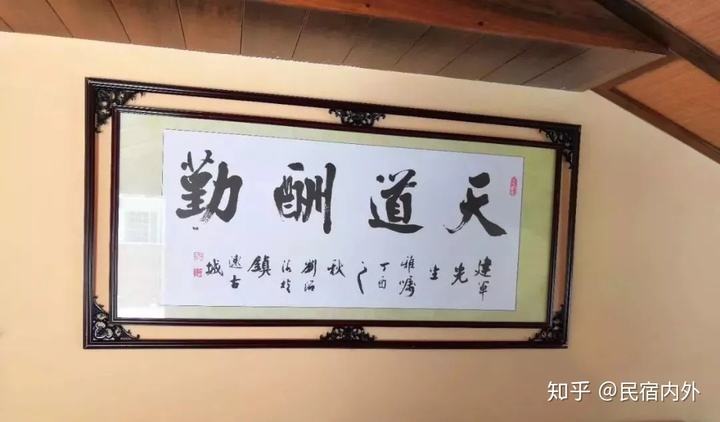 天道酬勤
建军先生雅嘱丁酉之秋劉於鎮遠古城
知乎 @民宿内外